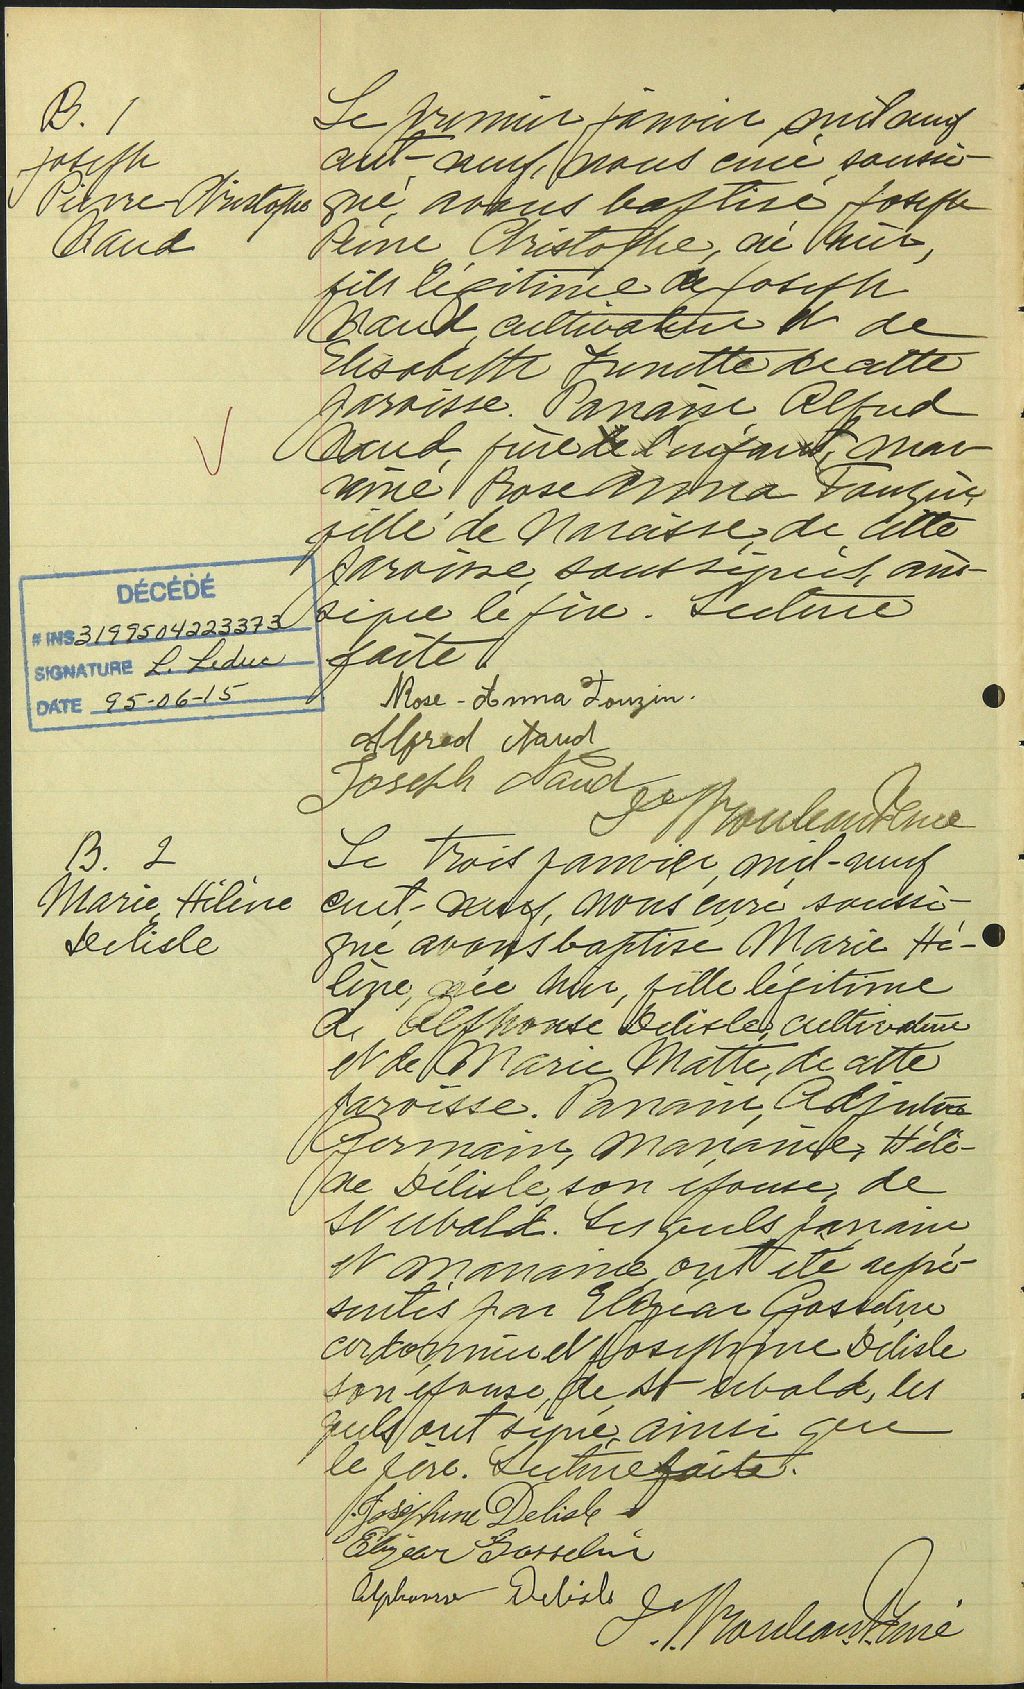 B. 1
Joseph
Pierre Christophe
Naud
Le premier janvier, mil neuf
cent-neuf, nous curé soussi-
gné, avons baptisé Joseph
Pierre Christophe, né hier,
fils légitime de Joseph
Naud cultivateur et de
Elisabeth Frenette de cette
paroisse. Parrain Alfred
Naud, frère de l'enfant, mar-
raine Rose Anna Touzin,
fille de Narcisse, de cette
paroisse, soussignés, ain-
si que le père. Lecture
faite.
DÉCÉDÉ
# INS 3199504223373
SIGNATURE L. Leduc
DATE 95-06-15
Rose-Anna Touzin.
Alfred Naud
Joseph Naud
Rouleau Ptre curé
B. 2
Marie, Hélène
Delisle
Le trois janvier, mil-neuf
cent-neuf, nous curé soussi-
gné avons baptisé Marie Hé-
lène, née hier, fille légitime
de Alphonse Delisle, cultivateur
et de Marie Matte, de cette
paroisse. Parrain, Adjutor
Germain, marraine, Hélè-
ne Delisle, son épouse, de
St Ubald. Les quels parrain
et marraine ont été repré-
sentés par Elzéar Gosselin
cordonnier et Josephine Delisle
son épouse, de St Ubald, les
quels ont signé ainsi que
le père. Lecture faite.
Joséphine Delisle
Elzear Gosselin
Alphonse Delisle
Rouleau Ptre curé